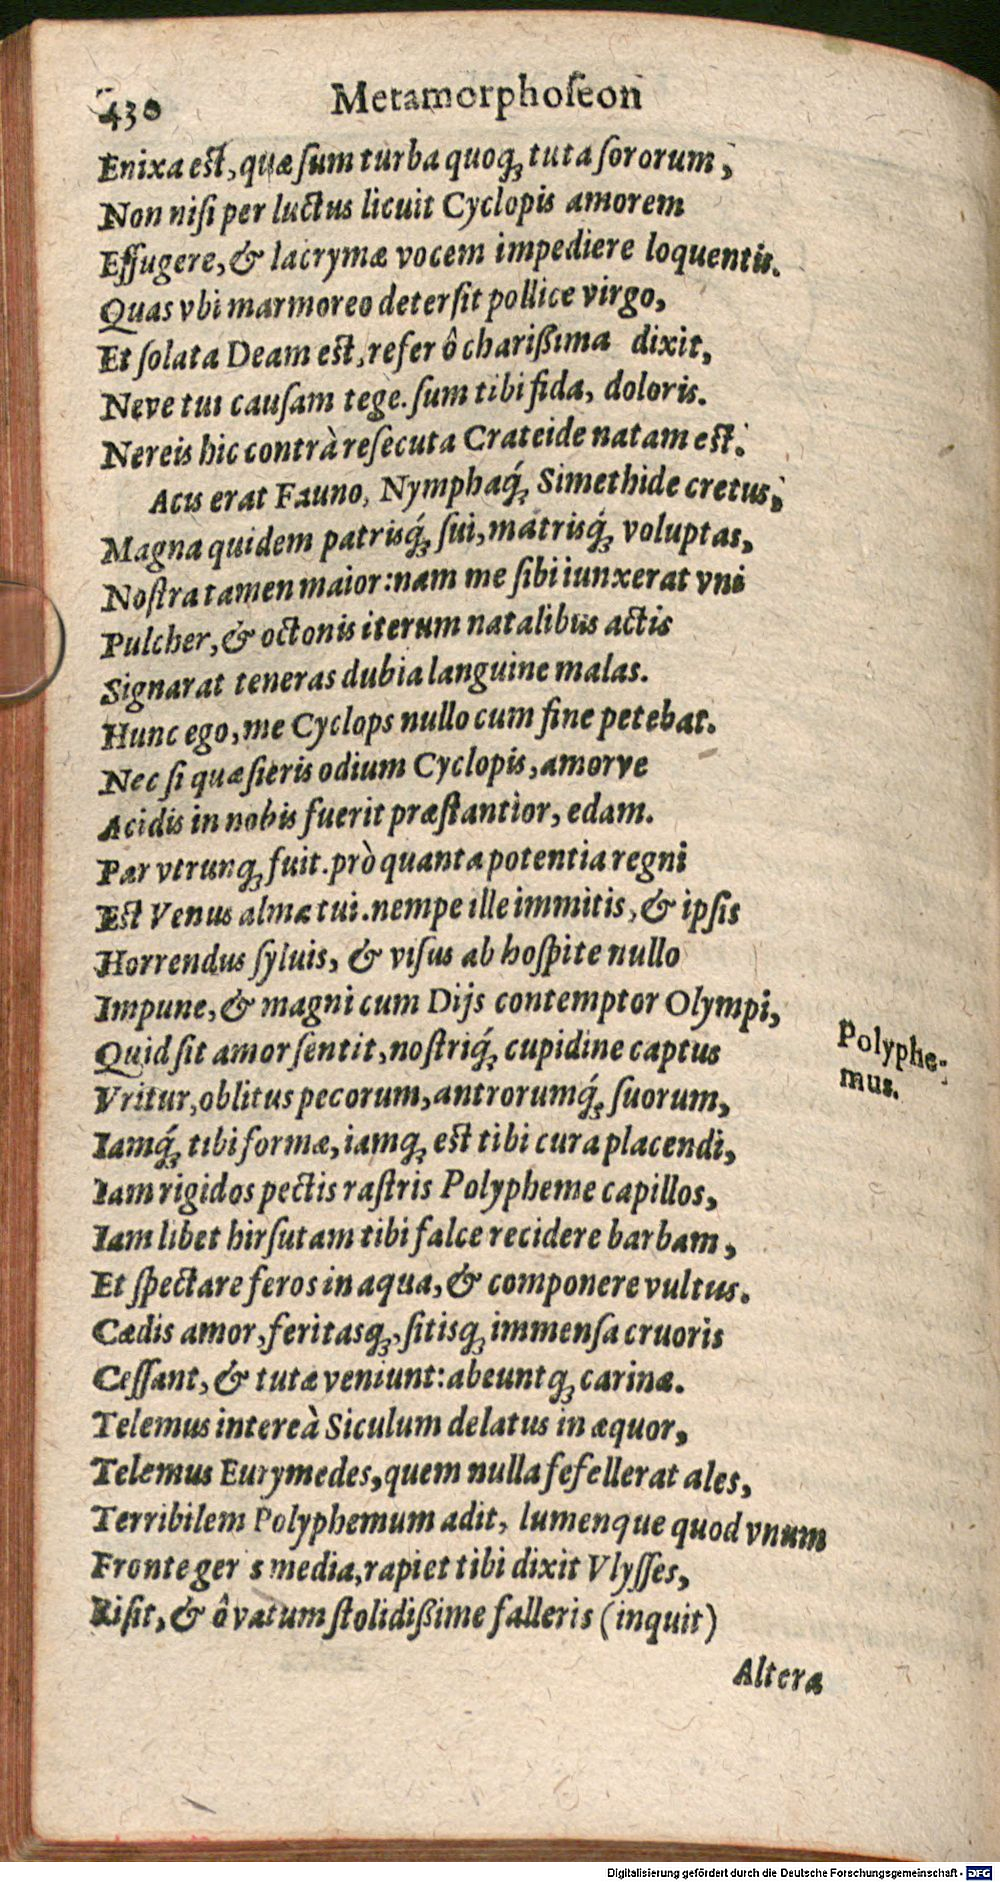 430 Metamorphoſeon
Enixa est, quæ ſum turba quoq; tuta ſororum;
Non niſi per luctus licuit Cyclopis amorem
Effugere, & lacrymæ vocem impediere loquentis.
Quas vbi marmoreo deterſit pollice virgo,
Et ſolata Deam est, refer ô chariſſima dixit,
Neve tui cauſam tege. ſum tibi fida, doloris.
Nereis hic contrà reſecuta Crateide natam est.
Acis erat Fauno, Nymphaq́; Simethide cretus;
Magna quidem patrisq́; ſui, matrisq́; voluptas,
Noſtra tamen maior: nam me ſibi iunxerat vni
Pulcher, & octonis iterum natalibus actis
Signarat teneras dubia languine malas.
Hunc ego, me Cyclops nullo cum fine petebat.
Nec ſi quæſieris odium Cyclopis, amorve
Acidis in nobis fuerit præſtantior, edam.
Par vtrunq; fuit. prò quanta potentia regni
Est Venus alma tui. nempe ille immitis, & ipſis
Horrendus ſyluis, & viſus ab hoſpite nullo
Impune, & magni cum Dijs contemptor Olympi,
Quid ſit amor ſentit, noſtriq́; cupidine captus
Vritur, oblitus pecorum, antrorumq́; ſuorum,
Polyphe-
mus.
Iamq́; tibi formæ, iamq; est tibi cura placendi,
Iam rigidos pectis raſtris Polypheme capillos,
Iam libet hirſutam tibi falce recidere barbam,
Et ſpectare feros in aqua, & componere vultus.
Cædis amor, feritasq;, ſitisq; immenſa cruoris
Ceſſant, & tutæ veniunt: abeuntq; carinæ.
Telemus intereà Siculum delatus in æquor,
Telemus Eurymedes, quem nulla fefellerat ales,
Terribilem Polyphemum adit, lumenque quod vnum
Fronte ger s media, rapiet tibi dixit Vlyſſes,
Riſit, & ô vatum ſtolidiſſime falleris (inquit)
Altera
Digitalisierung gefördert durch die Deutsche Forschungsgemeinschaft - DFG